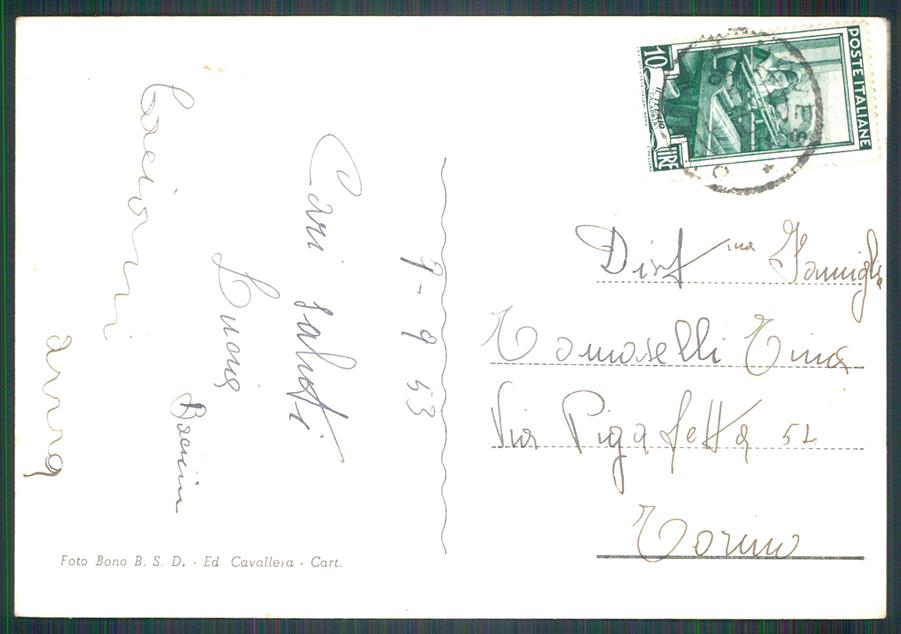 7-9 53
Cari saluti
Luciana
Bacioni
anna
Foto Bono B. S. D. - Ed Cavallera - Cart.
POSTE ITALIANE
10
LIRE
Dist ma Famiglia
Tomaselli Tina
Via Pigafetta 52
Torino